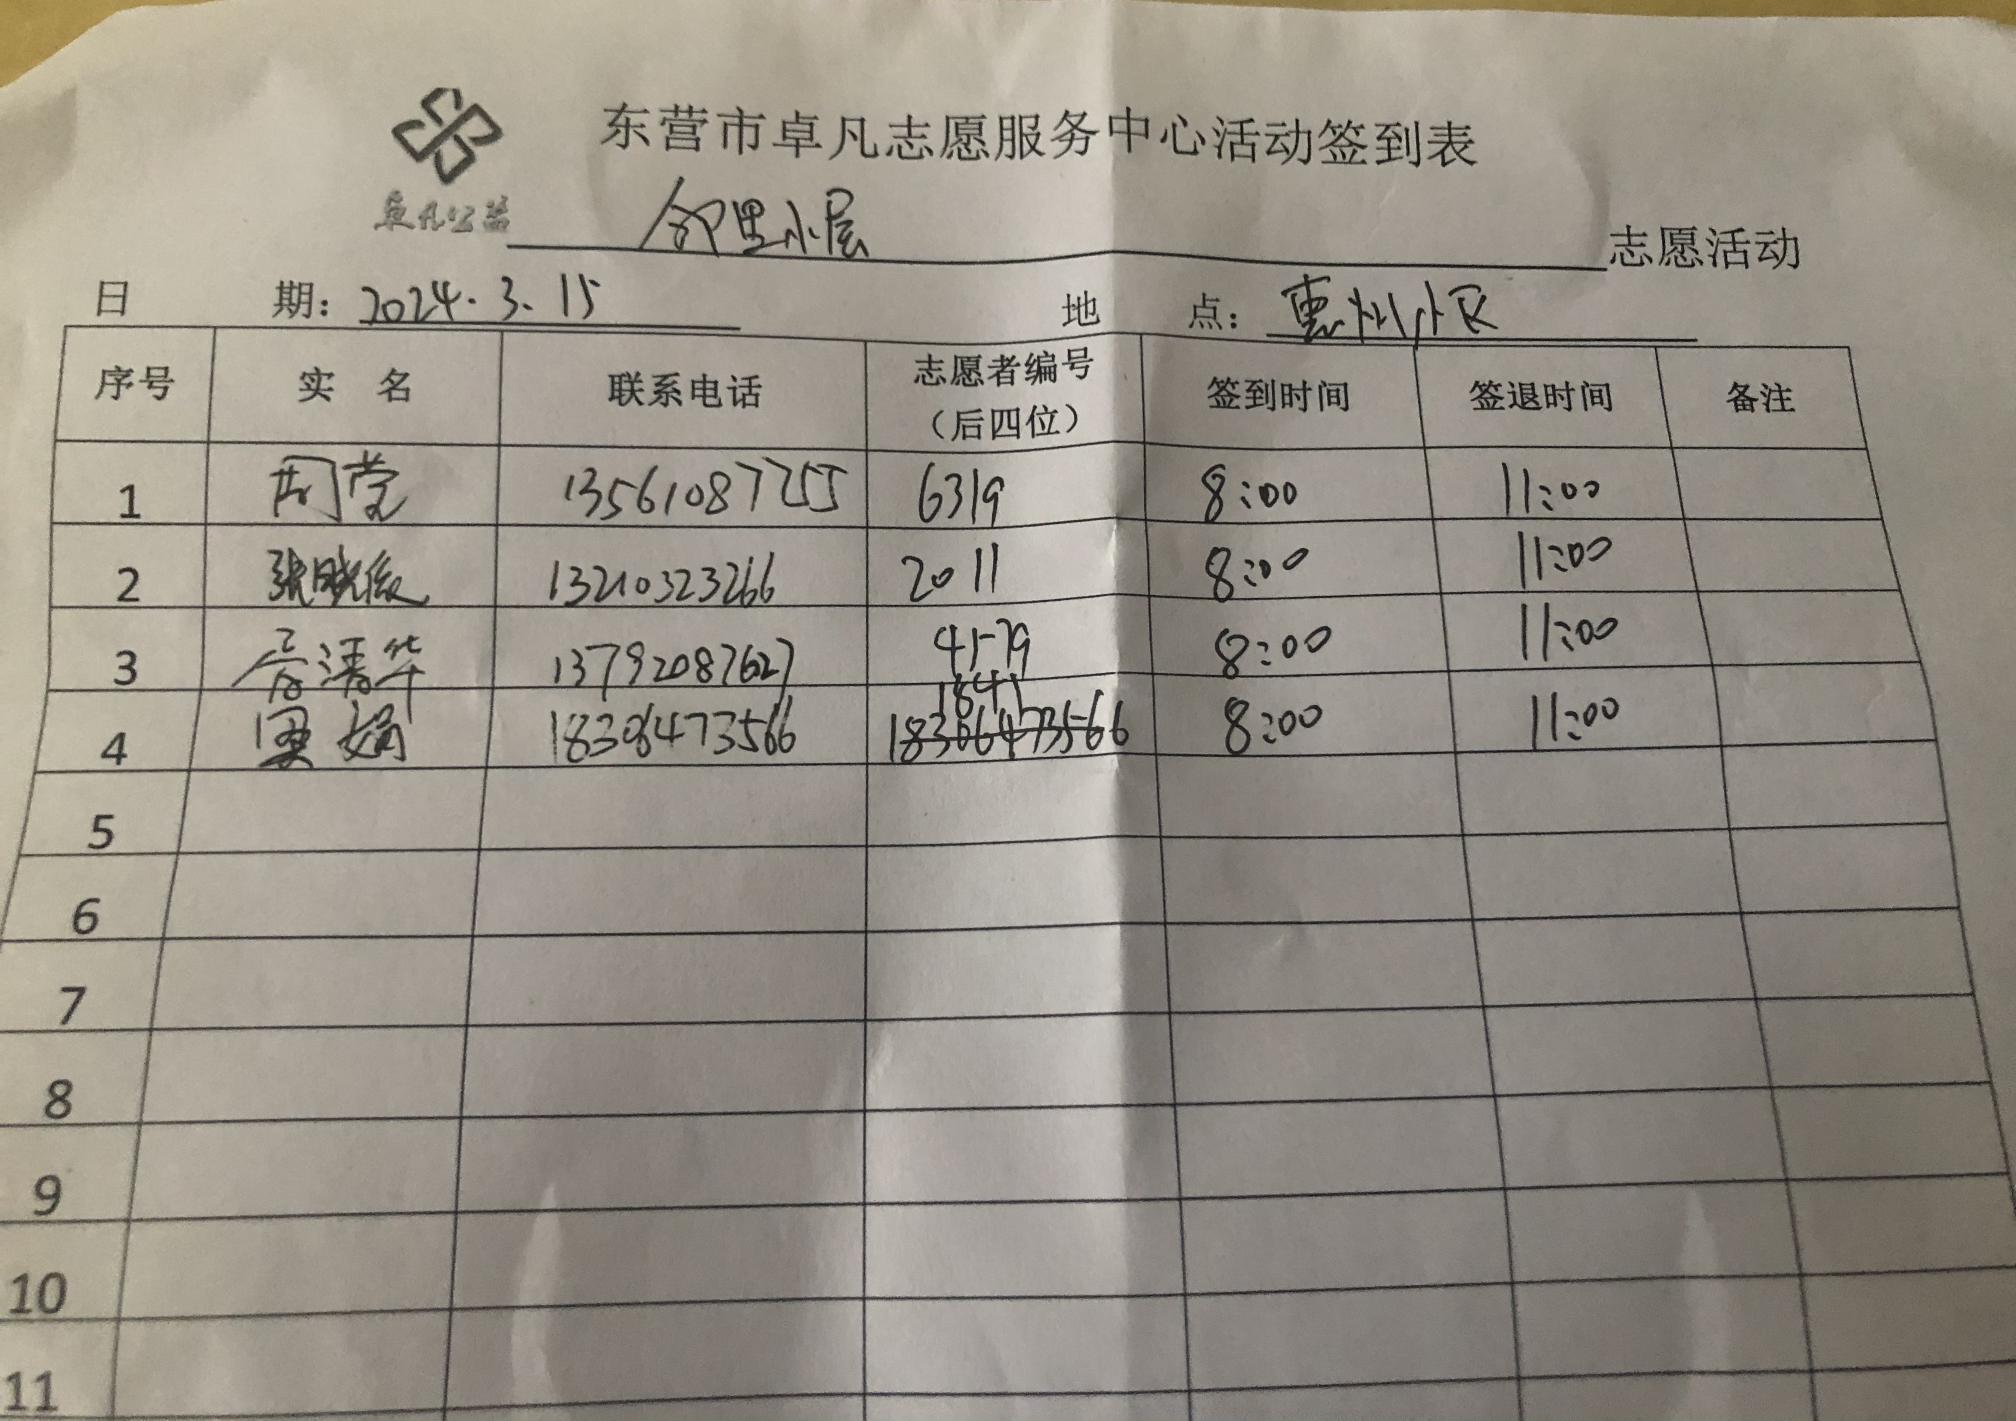 东营市卓凡志愿服务中心活动签到表
卓凡公益
邻里小屋 志愿活动
日 期: 2024.3.15 地 点: 惠州小区
序号 实 名 联系电话 志愿者编号（后四位） 签到时间 签退时间 备注
1 13561087255 6319 8:00 11:00
2 张晓俊 13210323266 2011 8:00 11:00
3 清华 13792087627 4179 8:00 11:00
4 娟 18306473566 1841 18306473566 8:00 11:00
5
6
7
8
9
10
11